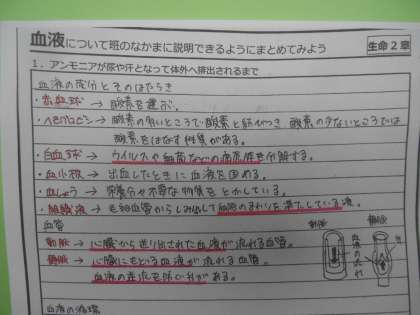 血液について班のなかまに説明できるようにまとめてみよう
生命2章
1．アンモニアが尿や汗となって体外へ排出されるまで
血液の成分とそのはたらき
・赤血球 → 酸素を運ぶ。
・ヘモグロビン → 酸素の多いところで酸素と結びつき 酸素の少ないところでは
酸素をはなす性質がある。
・白血球 → ウイルスや細菌などの病原体を分解する。
・血小板 → 出血したときに血液を固める。
・血しょう → 栄養分や不要な物質をとかしている。
・組織液 → 毛細血管からしみ出して細胞のまわりを満たしている液。
血管
動脈 → 心臓から送り出された血液が流れる血管。
静脈 → 心臓にもどる血液が流れる血管。
血液の逆流を防ぐ弁がある。
動脈
静脈
血液の流れ
血液の循環